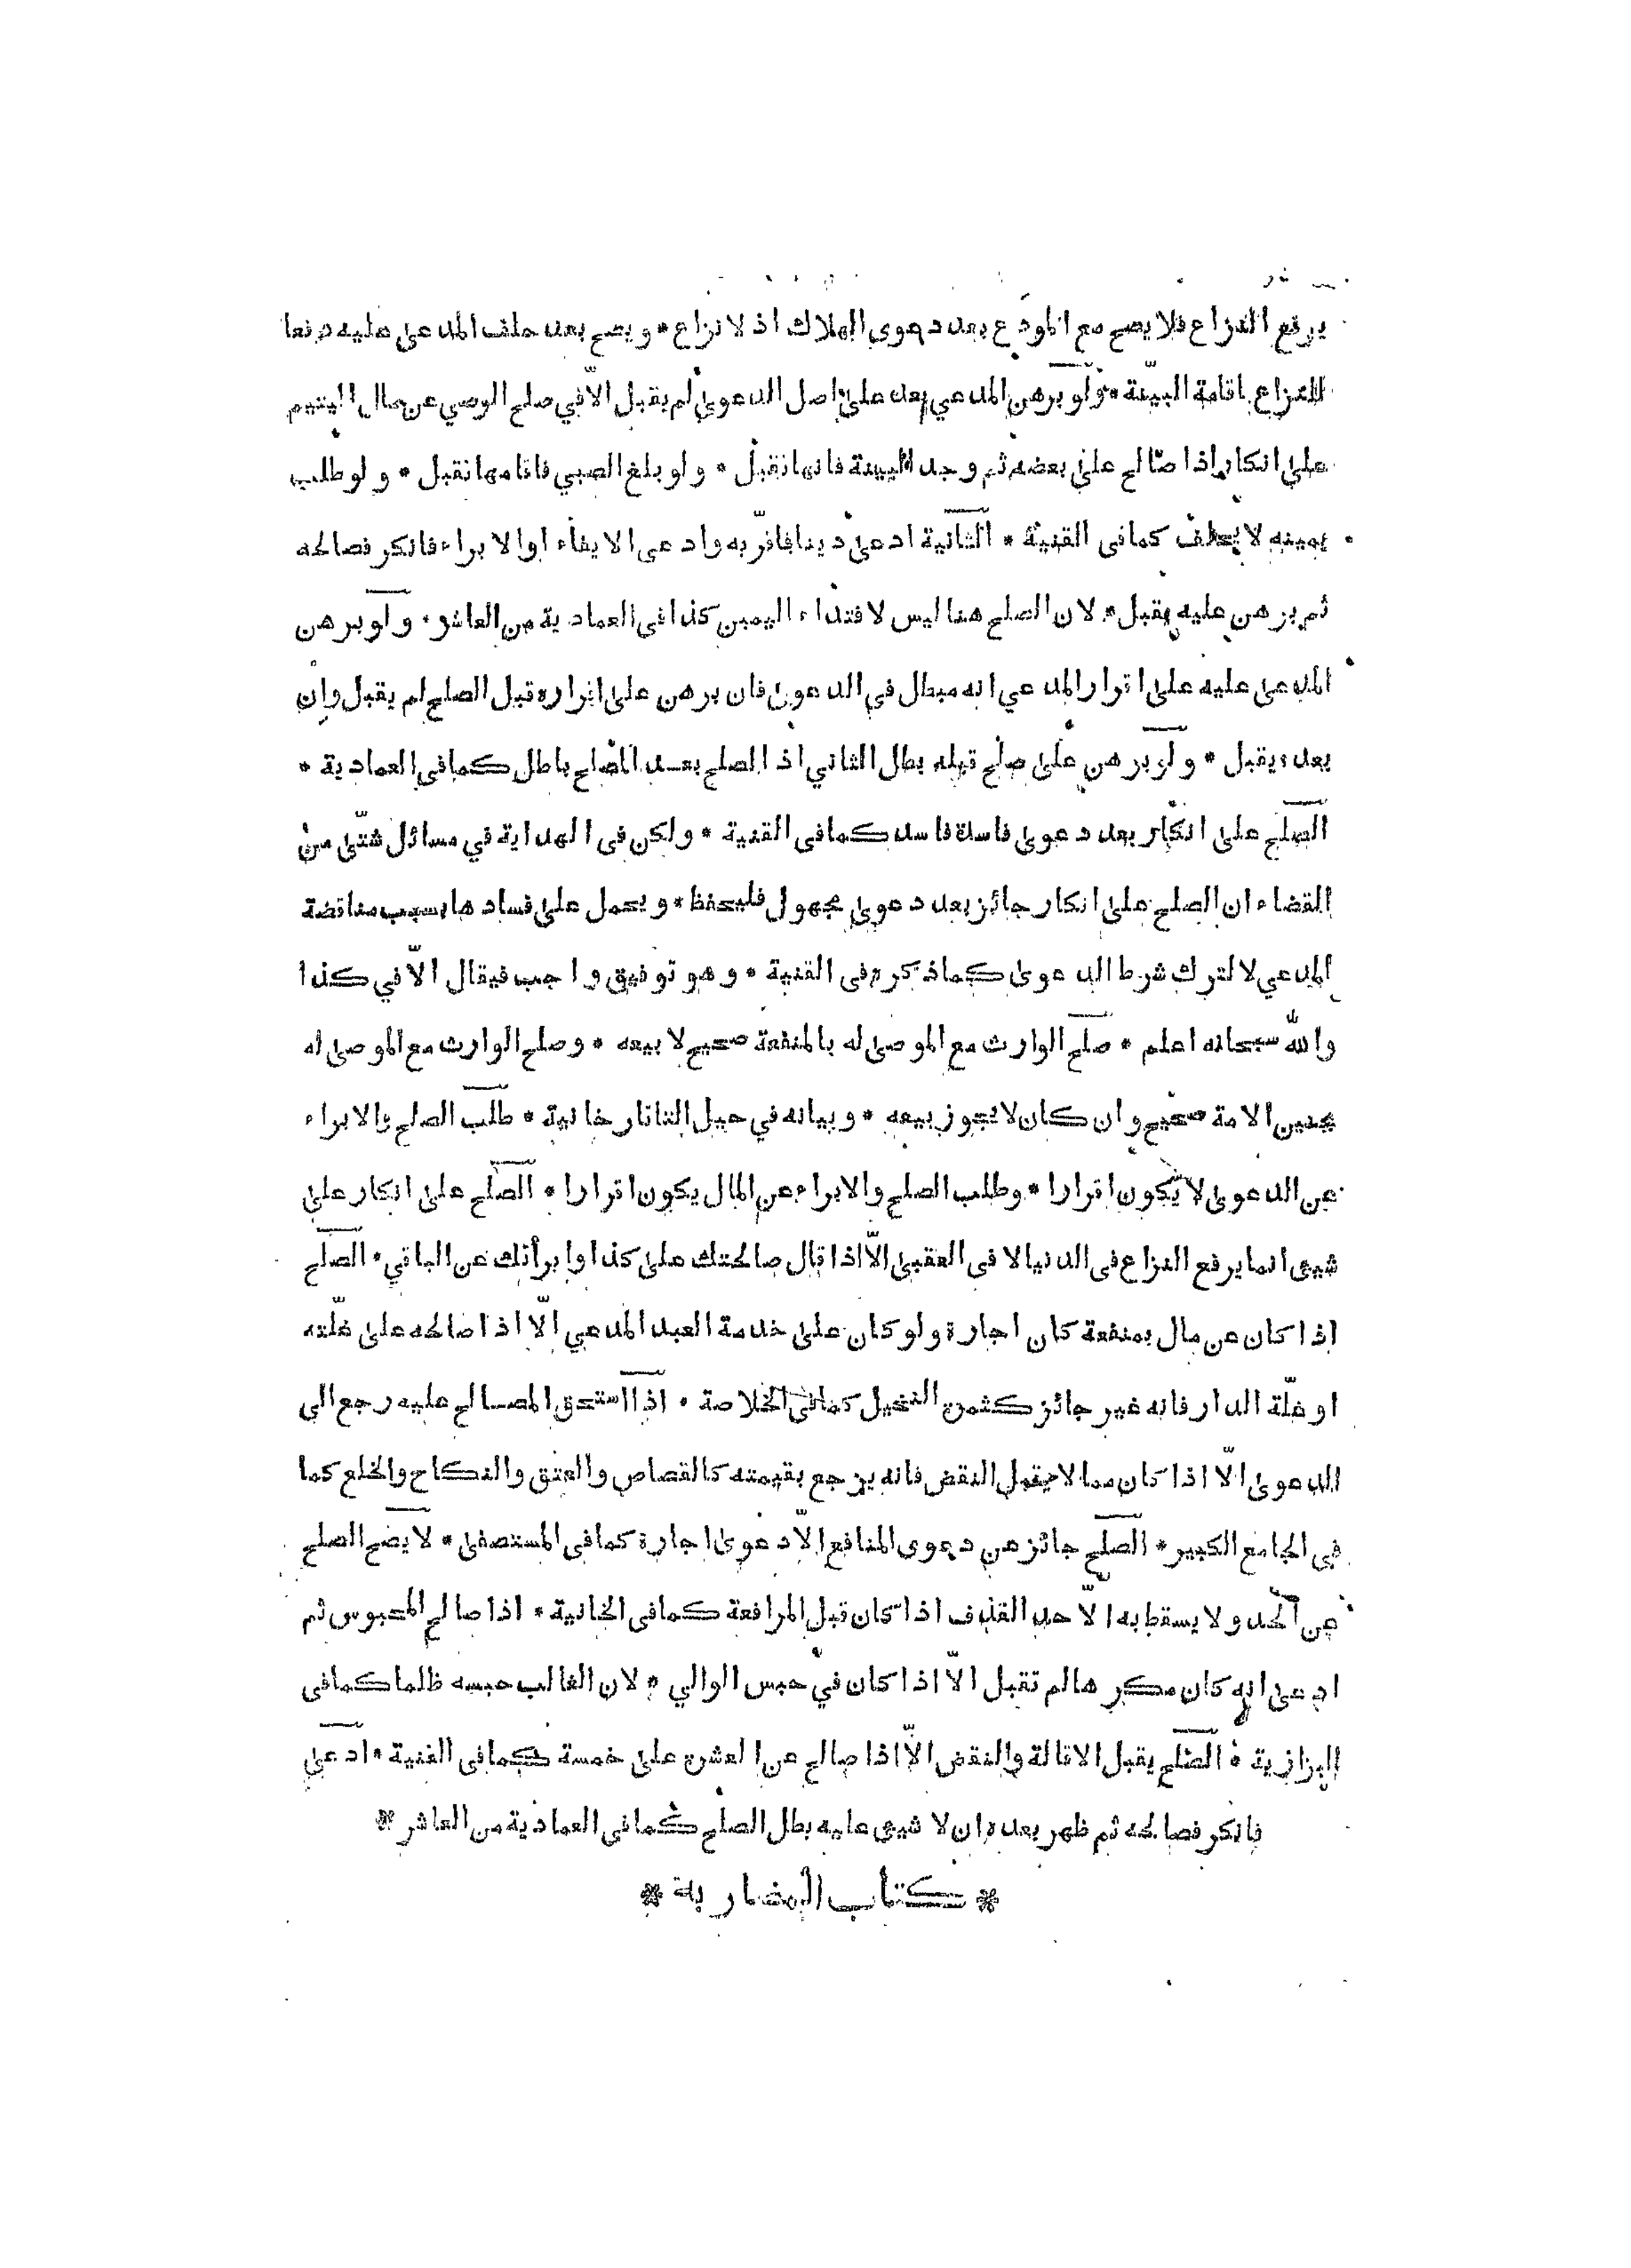 يرفع النزاع فلا يصح مع المودَع بعد دعوى الهلاك اذ لا نزاع * ويصح بعد حلف المدعى عليه دفعا
للنزاع باقامة البيّنة * ولو برهن المدعي بعده على اصل الدعوى لم يقبل الّا في صلح الوصي عن مال اليتيم
على انكار اذا صالح على بعضه ثم وجد البينة فانها تقبل * ولو بلغ الصبي فاقامها تقبل * ولو طلب
يمينه لا يحلف كما فى القنية * الثانية ادعى دينا فاقرّ به وادعى الايفاء اوالابراء فانكر فصالحه
ثم برهن عليه يقبل * لان الصلح هنا ليس لافتداء اليمين كذا فى العمادية من العاشر * ولو برهن
المدعى عليه على اقرار المدعي انه مبطل في الدعوى فان برهن على اقراره قبل الصلح لم يقبل وان
بعده يقبل * ولو برهن على صلح قبله بطل الثاني اذ الصلح بعد الصلح باطل كما فى العمادية *
الصلح على انكار بعد دعوى فاسدة فاسد كما فى القنية * ولكن فى الهداية في مسائل شتّى من
القضاء ان الصلح على انكار جائز بعد دعوى مجهول فليحفظ * ويحمل على فسادها بسبب مناقضة
المدعي لا لترك شرط الدعوى كما ذكره فى القنية * وهو توفيق واجب فيقال الّا في كذا
والله سبحانه اعلم * صلح الوارث مع الموصى له بالمنفعة صحيح لا بيعه * وصلح الوارث مع الموصى له
بجنين الامة صحيح وان كان لا يجوز بيعه * وبيانه في حيل التاتارخانية * طلب الصلح والابراء
عن الدعوى لا يكون اقرارا * وطلب الصلح والابراء عن المال يكون اقرارا * الصلح على انكار على
شيئ انما يرفع النزاع فى الدنيا لا فى العقبى الّا اذا قال صالحتك على كذا وابرأتك عن الباقي * الصلح
اذا كان عن مال بمنفعة كان اجارة ولو كان على خدمة العبد المدعي الّا اذا صالحه على غلّته
او غلّة الدار فانه غير جائز كثمرة النخيل كما فى الخلاصة * اذا استحق المصالح عليه رجع الى
الدعوى الّا اذا كان مما لا يقبل النقض فانه يرجع بقيمته كالقصاص والعتق والنكاح والخلع كما
فى الجامع الكبير * الصلح جائز عن دعوى المنافع الّا دعوى اجارة كما فى المستصفى * لا يصح الصلح
عن الحد ولا يسقط به الّا حد القذف اذا كان قبل المرافعة كما فى الخانية * اذا صالح المحبوس ثم
ادعى انه كان مكرها لم تقبل الّا اذا كان في حبس الوالي * لان الغالب حبسه ظلما كما فى
البزازية * الصلح يقبل الاقالة والنقض الّا اذا صالح عن العشرة على خمسة كما فى القنية * ادعى
فانكر فصالحه ثم ظهر بعده ان لا شيئ عليه بطل الصلح كما فى العمادية من العاشر *
* كتاب المضاربة *